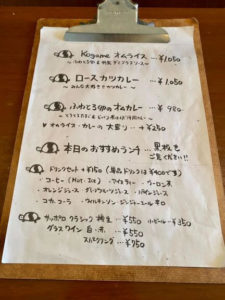 Kogame オムライス … ¥1050
〜ふわとろ卵&特製デミグラスソース〜
ロースカツカレー … ¥1,050
〜みんな大好き!カツカレー〜
ふわとろ卵のオムカレー … ¥980
オムライス・カレーの大盛り → +¥250
本日のおすすめランチ … 黒板を
ご覧ください!!
ドリンクセット +¥150 (単品ドリンクは¥400です)
・コーヒー(Hot. Ice) ・アイスティー ・ウーロン茶
・オレンジジュース ・グレープフルーツジュース ・パインジュース
・コカ.コーラ ・ウィルキンソン ジンジャーエール 辛口
サッポロ クラシック 樽生 … ¥550 小ビール … ¥350
グラスワイン 白・赤 … ¥550
スパークリング … ¥750